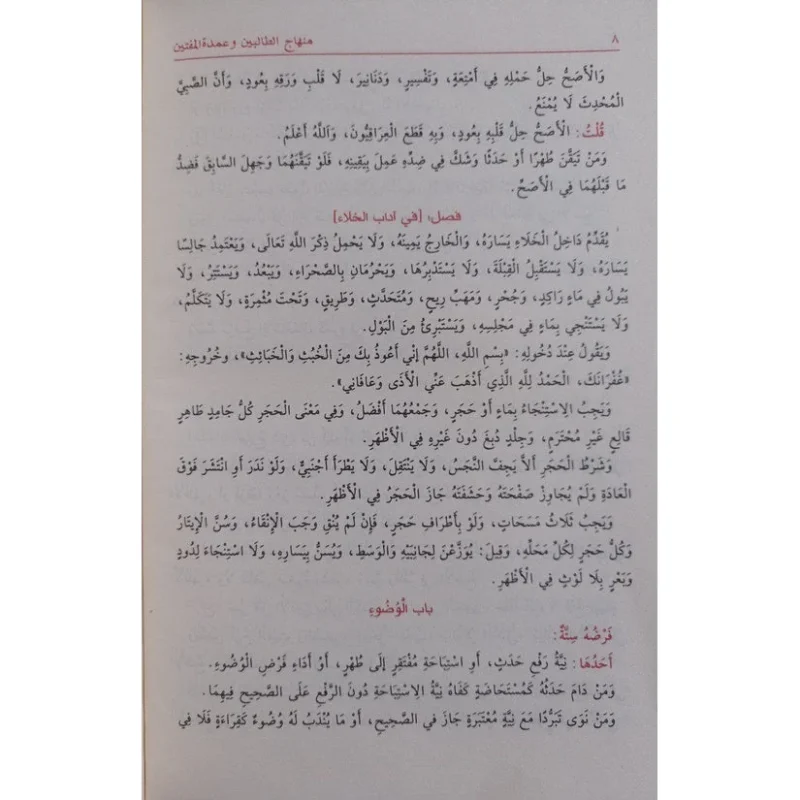 ٨ منهاج الطالبين وعمدة المفتين
وَالْأَصَحُّ حِلُّ حَمْلِهِ فِي أَمْتِعَةٍ، وَتَفْسِيرٍ، وَدَنَانِيرَ، لَا قَلْبِ وَرَقِهِ بِعُودٍ، وَأَنَّ الصَّبِيَّ
الْمُحْدِثَ لَا يُمْنَعُ.
قُلْتُ: الْأَصَحُّ حِلُّ قَلْبِهِ بِعُودٍ، وَبِهِ قَطَعَ الْعِرَاقِيُّونَ، وَاَللَّهُ أَعْلَمُ.
وَمَنْ تَيَقَّنَ طُهْرًا أَوْ حَدَثًا وَشَكَّ فِي ضِدِّهِ عَمِلَ بِيَقِينِهِ، فَلَوْ تَيَقَّنَهُمَا وَجَهِلَ السَّابِقَ فَضِدُّ
مَا قَبْلَهُمَا فِي الْأَصَحِّ.
فصل: [في آداب الخلاء]
يُقَدِّمُ دَاخِلُ الْخَلَاءِ يَسَارَهُ، وَالْخَارِجُ يَمِينَهُ، وَلَا يَحْمِلُ ذِكْرَ اللَّهِ تَعَالَى، وَيَعْتَمِدُ جَالِسًا
يَسَارَهُ، وَلَا يَسْتَقْبِلُ الْقِبْلَةَ، وَلَا يَسْتَدْبِرُهَا، وَيَحْرُمَانِ بِالصَّحْرَاءِ، وَيَبْعُدُ، وَيَسْتَتِرُ، وَلَا
يَبُولُ فِي مَاءٍ رَاكِدٍ، وَجُحْرٍ، وَمَهَبِّ رِيحٍ، وَمُتَحَدَّثٍ، وَطَرِيقٍ، وَتَحْتَ مُثْمِرَةٍ، وَلَا يَتَكَلَّمُ،
وَلَا يَسْتَنْجِي بِمَاءٍ فِي مَجْلِسِهِ، وَيَسْتَبْرِئُ مِنَ الْبَوْلِ.
وَيَقُولُ عِنْدَ دُخُولِهِ: «بِسْمِ اللَّهِ، اللَّهُمَّ إنِّي أَعُوذُ بِكَ مِنَ الْخُبُثِ وَالْخَبَائِثِ»، وخُرُوجِهِ:
«غُفْرَانَكَ، الْحَمْدُ لِلَّهِ الَّذِي أَذْهَبَ عَنِّي الْأَذَى وَعَافَانِي».
وَيَجِبُ الِاسْتِنْجَاءُ بِمَاءٍ أَوْ حَجَرٍ، وَجَمْعُهُمَا أَفْضَلُ، وَفِي مَعْنَى الْحَجَرِ كُلُّ جَامِدٍ طَاهِرٍ
قَالِعٍ غَيْرِ مُحْتَرَمٍ، وَجِلْدٍ دُبِغَ دُونَ غَيْرِهِ فِي الْأَظْهَرِ.
وَشَرْطُ الْحَجَرِ أَلاَّ يَجِفَّ النَّجَسُ، وَلَا يَنْتَقِلَ، وَلَا يَطْرَأَ أَجْنَبِيٌّ، وَلَوْ نَدَرَ أَوِ انْتَشَرَ فَوْقَ
الْعَادَةِ وَلَمْ يُجَاوِزْ صَفْحَتَهُ وَحَشَفَتَهُ جَازَ الْحَجَرُ فِي الْأَظْهَرِ.
وَيَجِبُ ثَلَاثُ مَسَحَاتٍ، وَلَوْ بِأَطْرَافِ حَجَرٍ، فَإِنْ لَمْ يُنْقِ وَجَبَ الْإِنْقَاءُ، وَسُنَّ الْإِيتَارُ
وَكُلُّ حَجَرٍ لِكُلِّ مَحَلِّهِ، وَقِيلَ: يُوَزَّعْنَ لِجَانِبَيْهِ وَالْوَسَطِ، وَيُسَنُّ بِيَسَارِهِ، وَلَا اسْتِنْجَاءَ لِدُودٍ
وَبَعْرٍ بِلَا لَوْثٍ فِي الْأَظْهَرِ.
باب الْوُضُوءِ
فَرْضُهُ سِتَّةٌ:
أَحَدُهَا: نِيَّةُ رَفْعِ حَدَثٍ، أَوِ اسْتِبَاحَةِ مُفْتَقِرٍ إلَى طُهْرٍ، أَوْ أَدَاءِ فَرْضِ الْوُضُوءِ.
وَمَنْ دَامَ حَدَثُهُ كَمُسْتَحَاضَةٍ كَفَاهُ نِيَّةُ الِاسْتِبَاحَةِ دُونَ الرَّفْعِ عَلَى الصَّحِيحِ فِيهِمَا.
وَمَنْ نَوَى تَبَرُّدًا مَعَ نِيَّةٍ مُعْتَبَرَةٍ جَازَ في الصَّحِيحِ، أَوْ مَا يُنْدَبُ لَهُ وُضُوءٌ كَقِرَاءَةٍ فَلَا فِي